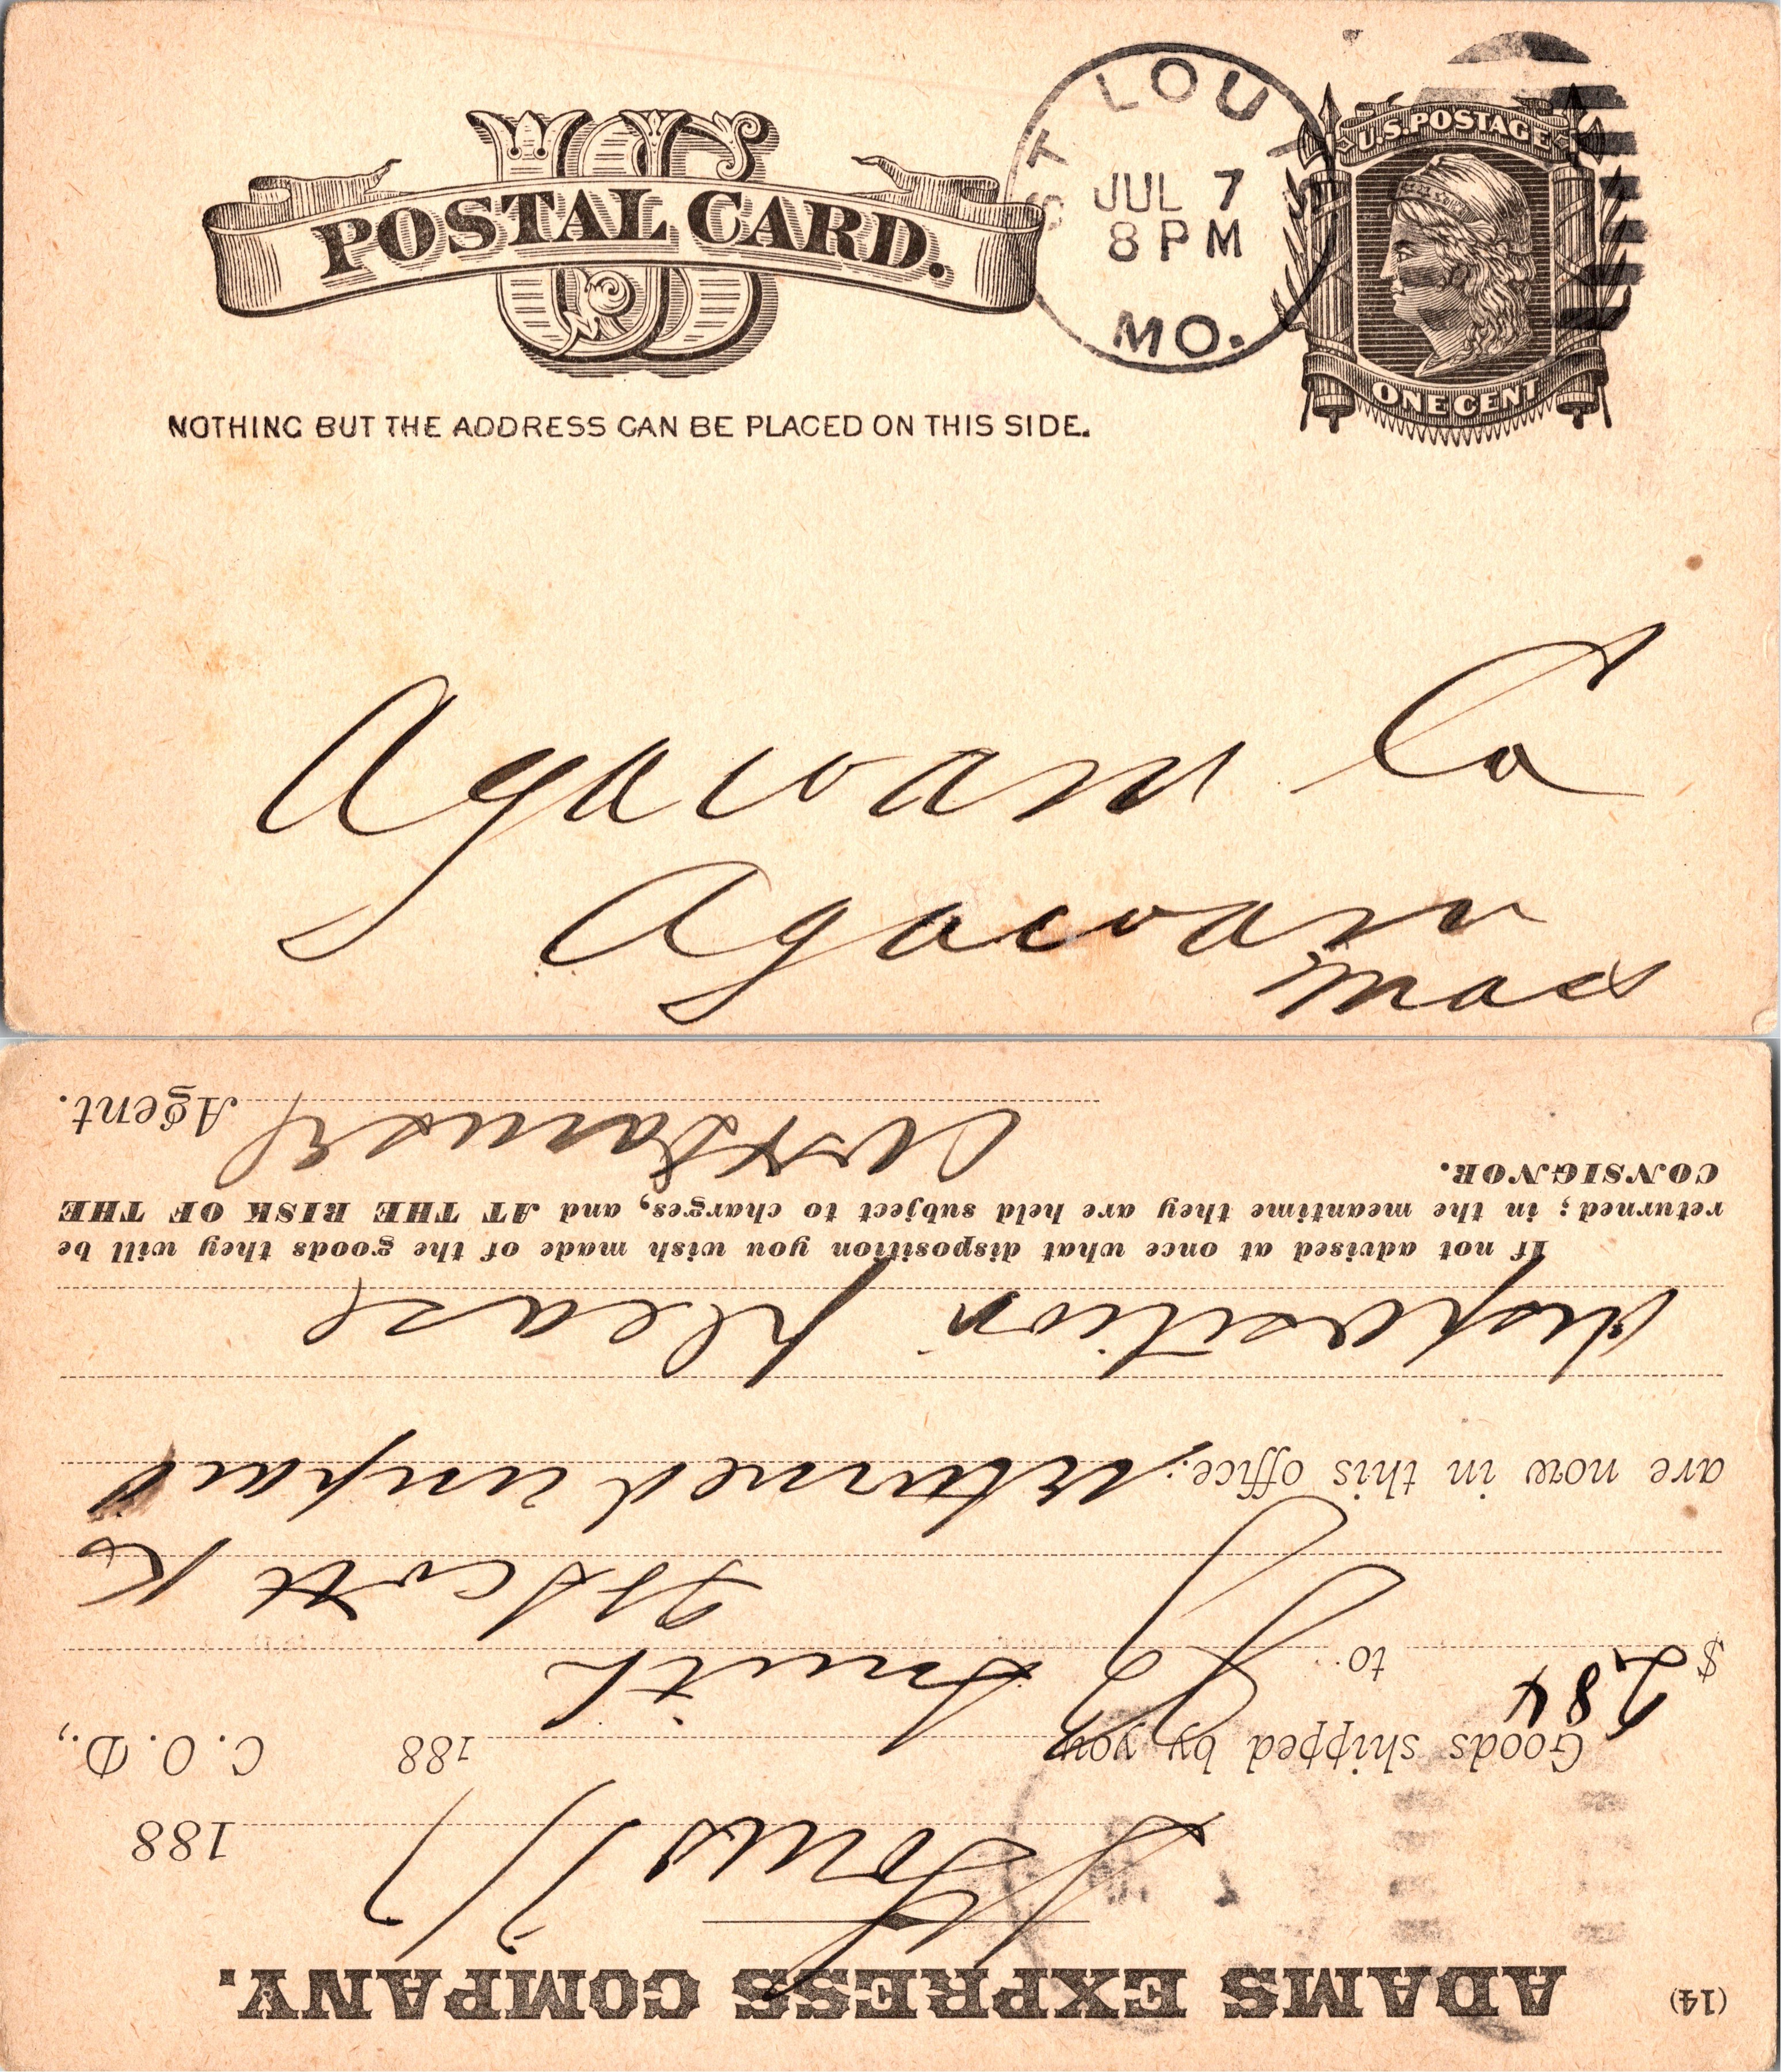 US
POSTAL CARD.
ST LOUIS
JUL 7
8 PM
MO.
U.S. POSTAGE
ONE CENT
NOTHING BUT THE ADDRESS CAN BE PLACED ON THIS SIDE.
Agawam Co
Agawam
Mass
(14) ADAMS EXPRESS COMPANY.
St Louis 7/7 188
Goods shipped by you 188 C. O. D.,
$ 284 to Smith
Ft Scott Ks
are now in this office; returned unpaid
disposition please
If not advised at once what disposition you wish made of the goods they will be
returned; in the meantime they are held subject to charges, and AT THE RISK OF THE
CONSIGNOR.
Agent.